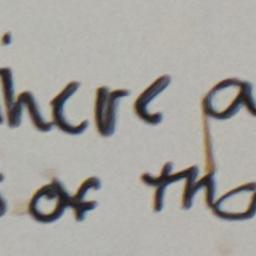 here a
of tha